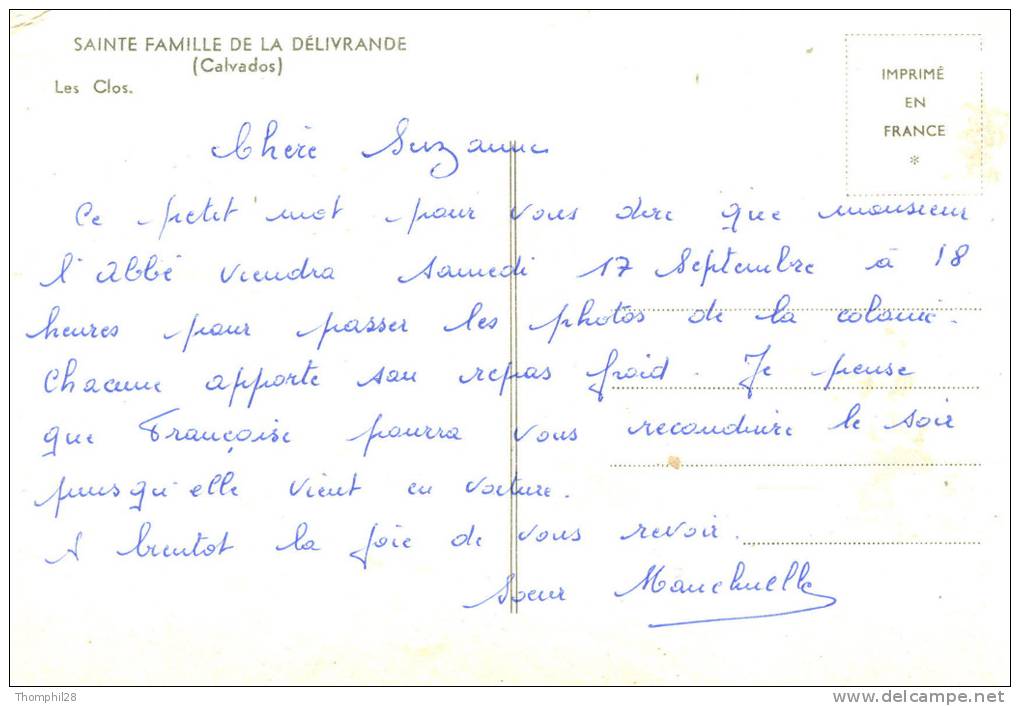 SAINTE FAMILLE DE LA DÉLIVRANDE
(Calvados)
Les Clos.
IMPRIMÉ
EN
FRANCE
*
Chère Suzanne
Ce petit mot pour vous dire que monsieur
l'Abbé viendra samedi 17 Septembre à 18
heures pour passer les photos de la colonie.
Chacune apporte son repas froid. Je pense
que Françoise pourra vous reconduire le soir
puisqu'elle vient en voiture.
A bientot la joie de vous revoir.
Soeur
Thomphi28
www.delcampe.net